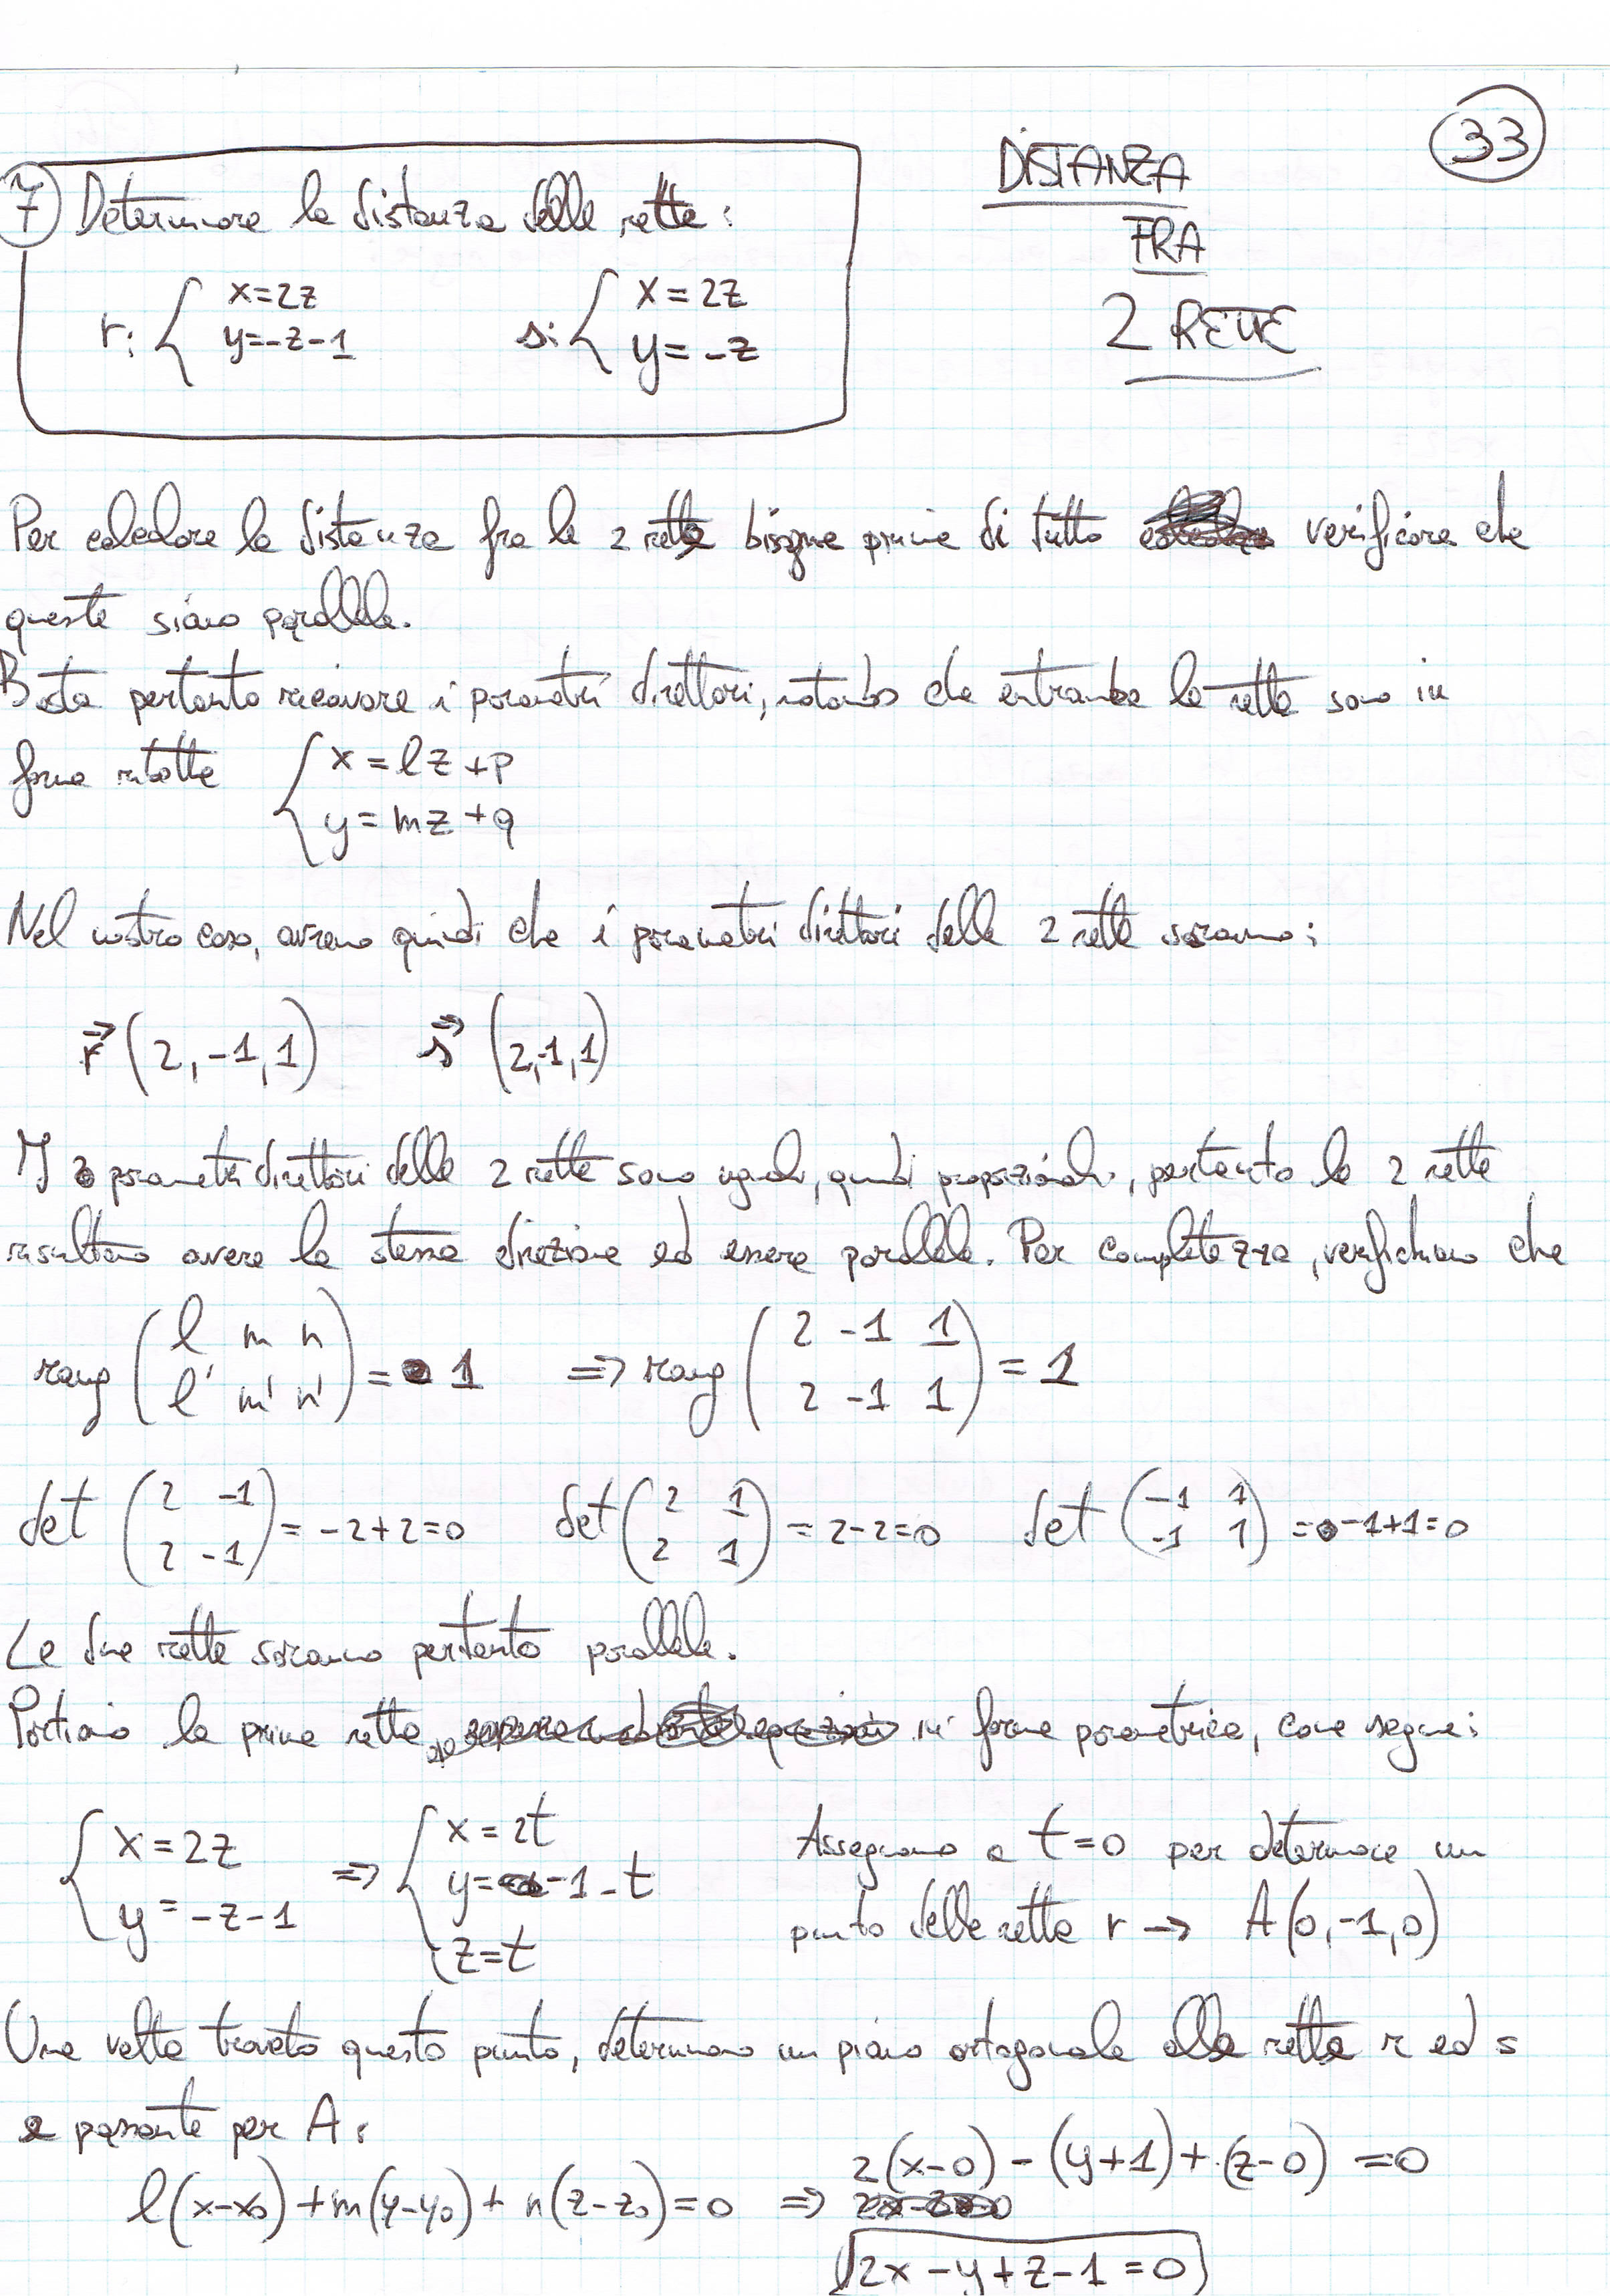 33
DISTANZA
FRA
2 RETTE
7 Determinare la distanza delle rette:
r: { x=2z
y=-z-1
s: { x=2z
y=-z
Per calcolare la distanza fra le 2 rette bisogna prima di tutto verificare che
queste siano parallele.
Basta pertanto ricavare i parametri direttori, notando che entrambe le rette sono in
forma ridotta { x=lz+p
y=mz+q
Nel nostro caso, avremo quindi che i parametri direttori delle 2 rette saranno:
r⃗ (2,-1,1) s⃗ (2,-1,1)
I parametri direttori delle 2 rette sono uguali, quindi proporzionali, pertanto le 2 rette
risultano avere la stessa direzione ed essere parallele. Per completezza, verifichiamo che
rang ( l m n
l' m' n' ) = 1 => rang ( 2 -1 1
2 -1 1 ) = 1
det ( 2 -1
2 -1 ) = -2+2=0 det ( 2 1
2 1 ) = 2-2=0 det ( -1 1
-1 1 ) = -1+1=0
Le due rette saranno pertanto parallele.
Portiamo la prima retta in forma parametrica, come segue:
{ x=2z
y=-z-1 => { x=2t
y=-1-t
z=t
Assegniamo a t=0 per determinare un
punto della retta r → A(0,-1,0)
Una volta trovato questo punto, determiniamo un piano ortogonale alla retta r ed s
e passante per A:
l(x-x₀)+m(y-y₀)+n(z-z₀)=0 => 2(x-0)-(y+1)+(z-0)=0
2x-y+z-1=0